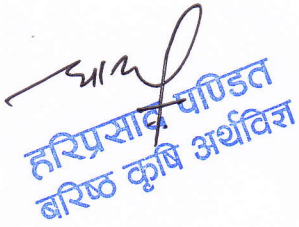 हरिप्रसाद पण्डित
बरिष्ठ कृषि अर्थविज्ञ